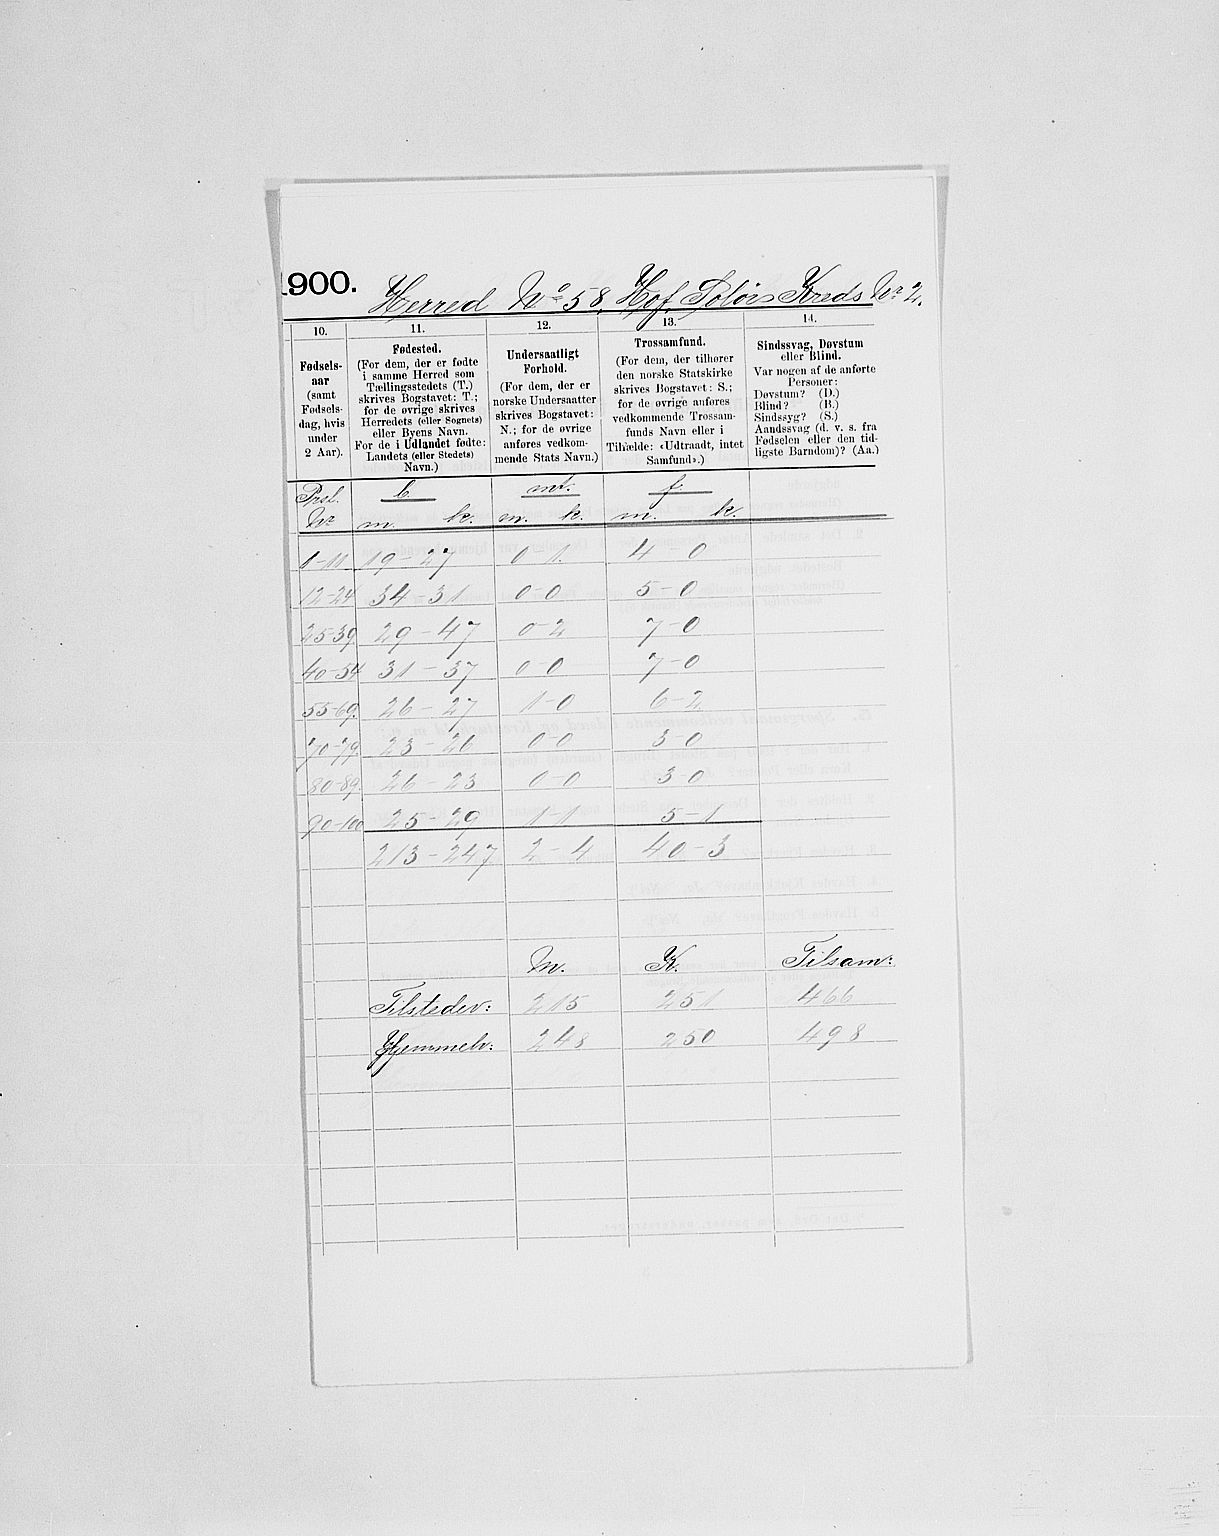 1900. Herred No 58, Hof, Solör Kreds Nr 2.
10. 11. 12. 13. 14.
Fødsels-
aar
(samt
Fødsels-
dag, hvis
under
2 Aar).
Fødested.
(For dem, der er fødte
i samme Herred som
Tællingsstedets (T.)
skrives Bogstavet: T.;
for de øvrige skrives
Herredets (eller Sognets)
eller Byens Navn.
For de i Udlandet fødte:
Landets (eller Stedets)
Navn.)
Undersaatligt
Forhold.
(For dem, der er
norske Undersaatter
skrives Bogstavet:
N.; for de øvrige
anføres vedkom-
mende Stats Navn.)
Trossamfund.
(For dem, der tilhører
den norske Statskirke
skrives Bogstavet: S.;
for de øvrige anføres
vedkommende Trossam-
funds Navn eller i
Tilfælde: «Udtraadt, intet
Samfund».)
Sindssvag, Døvstum
eller Blind.
Var nogen af de anførte
Personer:
Døvstum? (D.)
Blind? (B.)
Sindssyg? (S.)
Aandssvag (d. v. s. fra
Fødselen eller den tid-
ligste Barndom)? (Aa.)
Prsl. b. mt. f.
Nr m. k. m. k. m. k.
1-11 19-27 0-1. 4-0
12-24 34-31 0-0 5-0
25-39 29-47 0-2 7-0
40-54 31-37 0-0 7-0
55-69. 26-27 1-0 6-2
70-79. 23-26 0-0 3-0
80-89. 26-23 0-0 3-0
90-100 25-29 1-1 5-1
213-247 2-4 40-3
M. K. Tilsam:
Tilstedev: 215 251 466
Hjemmeh: 248 250 498